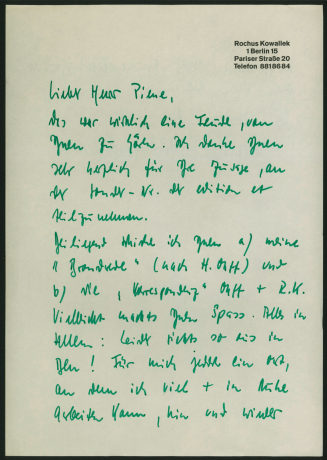 Rochus Kowallek
1 Berlin 15
Pariser Straße 20
Telefon 8818684
Liebster Herr Piene,
das war wirklich eine Freude, von
Ihnen zu hören. Ich danke Ihnen
sehr herzlich für Ihre Zusage, an
der Sonder-Nr. der edition et
teilzunehmen.
Beiliegend schicke ich Ihnen a) meine
"Brandrede" (nach H. Off) und
b) die "Korrespondenz" Off + R.K.
Vielleicht macht's Ihnen Spass. Alles in
allem: leicht sieht's so aus in
Bln! Für mich jedoch ein Ort,
an dem ich viel + in Ruhe
arbeiten kann, hin und wieder